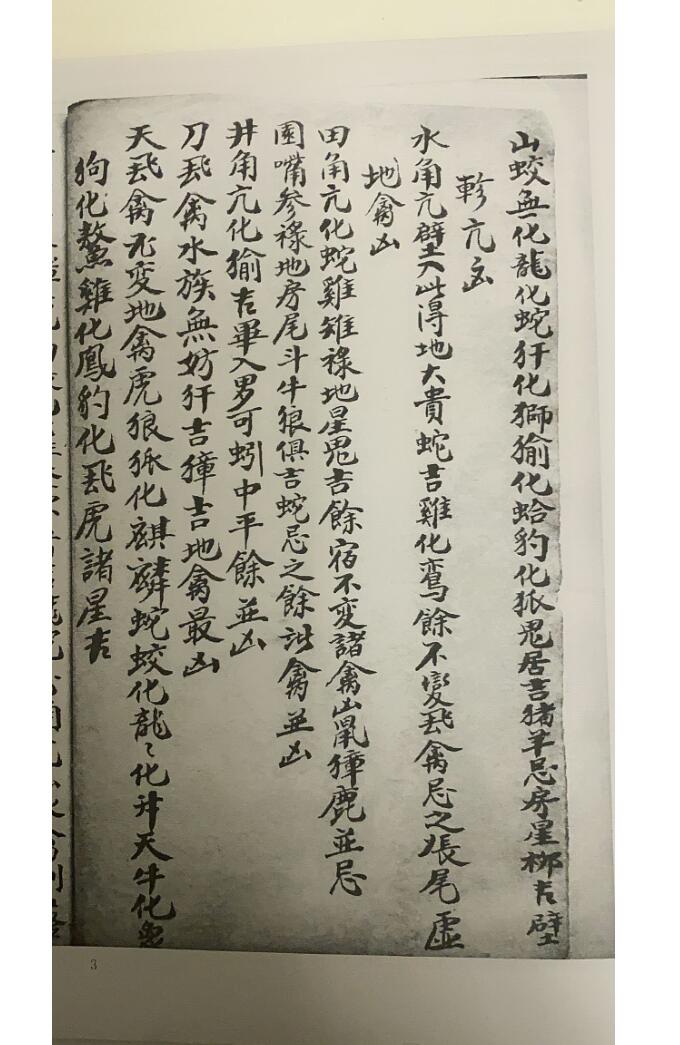 山蛟無化龍化蛇犴化獅㺄化蛤豹化狐鬼居吉猪羊忌房星柳吉壁
軫亢凶
水角亢壁入此得地大貴蛇吉雞化鸞餘不變飛禽忌之張尾虛
地禽凶
田角亢化蛇雞雉祿地星鬼吉餘宿不變諸禽山鼠獐鹿並忌
園嘴參祿地房尾斗牛狼俱吉蛇忌之餘諸禽並凶
井角亢化㺄吉畢入羅可蚓中平餘並凶
刀飛禽水族無妨犴吉獐吉地禽最凶
天飛禽不變地禽虎狼狐化麒麟蛇蛟化龍龍化升天牛化
狗化鰲雞化鳳豹化飛虎諸星吉
3